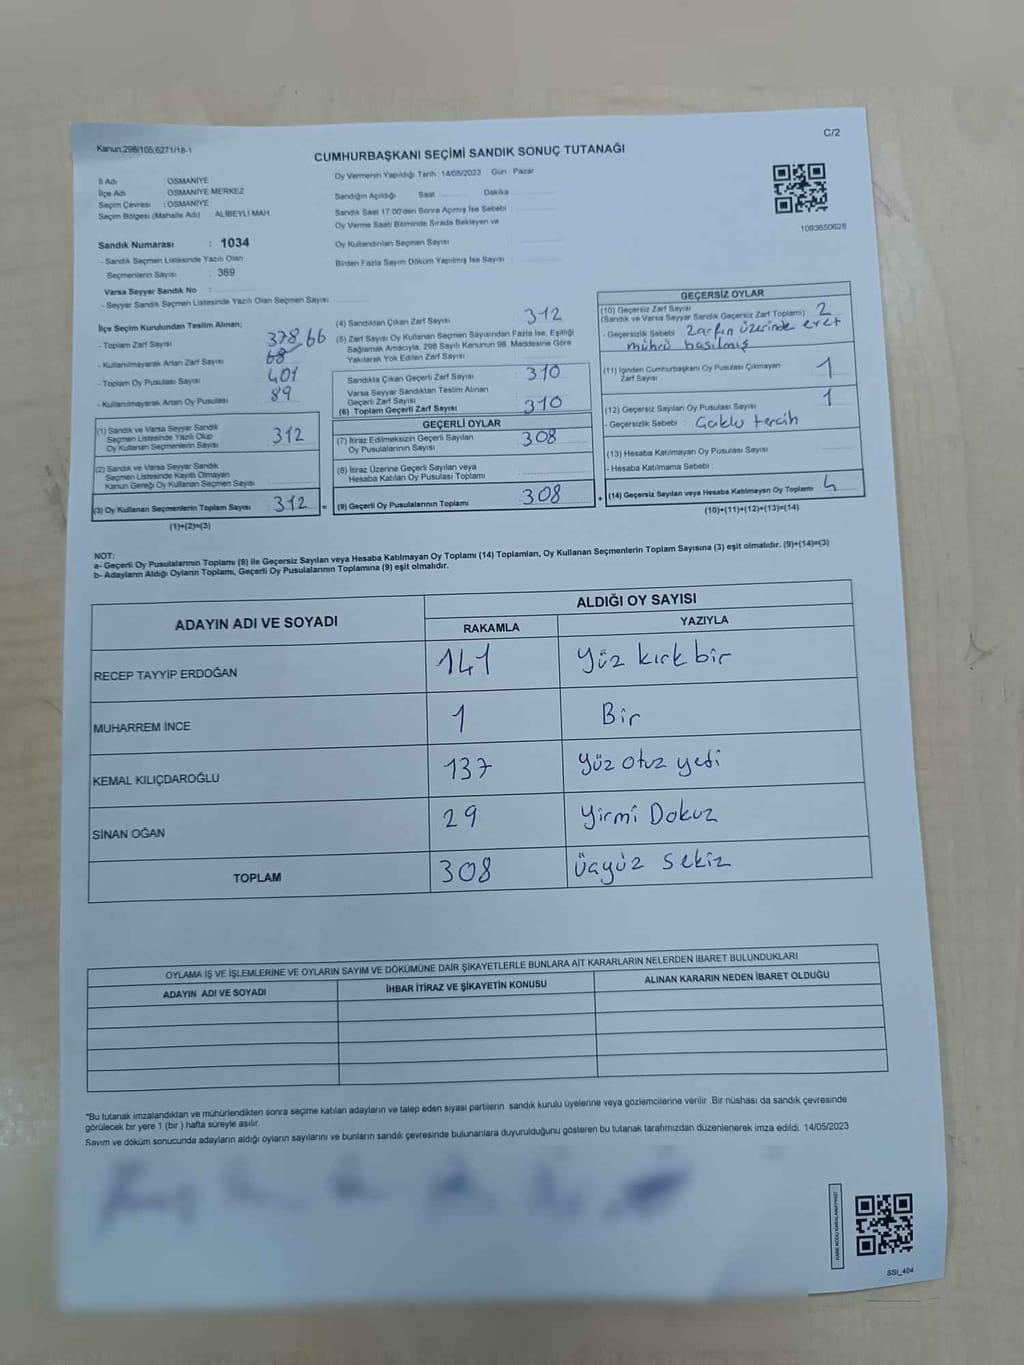 Kanun:298/105;6271/18-1
C/2
CUMHURBAŞKANI SEÇİMİ SANDIK SONUÇ TUTANAĞI
İli Adı OSMANİYE
İlçe Adı : OSMANİYE MERKEZ
Seçim Çevresi : OSMANİYE
Seçim Bölgesi (Mahalle Adı) : ALİBEYLİ MAH.
Sandık Numarası : 1034
- Sandık Seçmen Listesinde Yazılı Olan
Seçmenlerin Sayısı : 369
Varsa Seyyar Sandık No :
- Seyyar Sandık Seçmen Listesinde Yazılı Olan Seçmen Sayısı:
Oy Vermenin Yapıldığı Tarih :14/05/2023 Gün Pazar
Sandığın Açıldığı Saat Dakika
Sandık Saat 17.00'den Sonra Açılmış İse Sebebi
Oy Verme Saati Bitiminde Sırada Bekleyen ve
Oy Kullandırılan Seçmen Sayısı :
Birden Fazla Sayım Döküm Yapılmış İse Sayısı :
1093650628
İlçe Seçim Kurulundan Teslim Alınan;
- Toplam Zarf Sayısı 378
- Kullanılmayarak Artan Zarf Sayısı 66 68
- Toplam Oy Pusulası Sayısı 401
- Kullanılmayarak Artan Oy Pusulası 89
(1) Sandık ve Varsa Seyyar Sandık
Seçmen Listesinde Yazılı Olup
Oy Kullanan Seçmenlerin Sayısı 312
(2) Sandık ve Varsa Seyyar Sandık
Seçmen Listesinde Kayıtlı Olmayan
Kanun Gereği Oy Kullanan Seçmen Sayısı
(3) Oy Kullanan Seçmenlerin Toplam Sayısı : 312 =
(1)+(2)=(3)
(4) Sandıktan Çıkan Zarf Sayısı 312
(5) Zarf Sayısı Oy Kullanan Seçmen Sayısından Fazla İse, Eşitliği
Sağlamak Amacıyla, 298 Sayılı Kanunun 98. Maddesine Göre
Yakılarak Yok Edilen Zarf Sayısı
Sandıkta Çıkan Geçerli Zarf Sayısı 310
Varsa Seyyar Sandıktan Teslim Alınan
Geçerli Zarf Sayısı
(6) Toplam Geçerli Zarf Sayısı 310
GEÇERLİ OYLAR
(7) İtiraz Edilmeksizin Geçerli Sayılan
Oy Pusulalarının Sayısı 308
(8) İtiraz Üzerine Geçerli Sayılan veya
Hesaba Katılan Oy Pusulası Toplamı
(9) Geçerli Oy Pusulalarının Toplamı :308 +
GEÇERSİZ OYLAR
(10) Geçersiz Zarf Sayısı
(Sandık ve Varsa Seyyar Sandık Geçersiz Zarf Toplamı) 2
- Geçersizlik Sebebi : Zarfın üzerinde evet
mührü basılmış
(11) İçinden Cumhurbaşkanı Oy Pusulası Çıkmayan
Zarf Sayısı 1
(12) Geçersiz Sayılan Oy Pusulası Sayısı 1
- Geçersizlik Sebebi : Çoklu tercih
(13) Hesaba Katılmayan Oy Pusulası Sayısı
- Hesaba Katılmama Sebebi :
(14) Geçersiz Sayılan veya Hesaba Katılmayan Oy Toplamı 4
(10)+(11)+(12)+(13)=(14)
NOT:
a- Geçerli Oy Pusulalarının Toplamı (9) ile Geçersiz Sayılan veya Hesaba Katılmayan Oy Toplamı (14) Toplamları, Oy Kullanan Seçmenlerin Toplam Sayısına (3) eşit olmalıdır. (9)+(14)=(3)
b- Adayların Aldığı Oyların Toplamı, Geçerli Oy Pusulalarının Toplamına (9) eşit olmalıdır.
ADAYIN ADI VE SOYADI ALDIĞI OY SAYISI
RAKAMLA YAZIYLA
RECEP TAYYİP ERDOĞAN 141 Yüz kırk bir
MUHARREM İNCE 1 Bir
KEMAL KILIÇDAROĞLU 137 yüz otuz yedi
SİNAN OĞAN 29 Yirmi Dokuz
TOPLAM 308 üçyüz sekiz
OYLAMA İŞ VE İŞLEMLERİNE VE OYLARIN SAYIM VE DÖKÜMÜNE DAİR ŞİKAYETLERLE BUNLARA AİT KARARLARIN NELERDEN İBARET BULUNDUKLARI
ADAYIN ADI VE SOYADI İHBAR İTİRAZ VE ŞİKAYETİN KONUSU ALINAN KARARIN NEDEN İBARET OLDUĞU
*Bu tutanak imzalandıktan ve mühürlendikten sonra seçime katılan adayların ve talep eden siyasi partilerin sandık kurulu üyelerine veya gözlemcilerine verilir .Bir nüshası da sandık çevresinde
görülecek bir yere 1 (bir ) hafta süreyle asılır.
Sayım ve döküm sonucunda adayların aldığı oyların sayılarını ve bunların sandık çevresinde bulunanlara duyurulduğunu gösteren bu tutanak tarafımızdan düzenlenerek imza edildi. 14/05/2023
KARE KODU KARALAMAYINIZ!
SSI_404